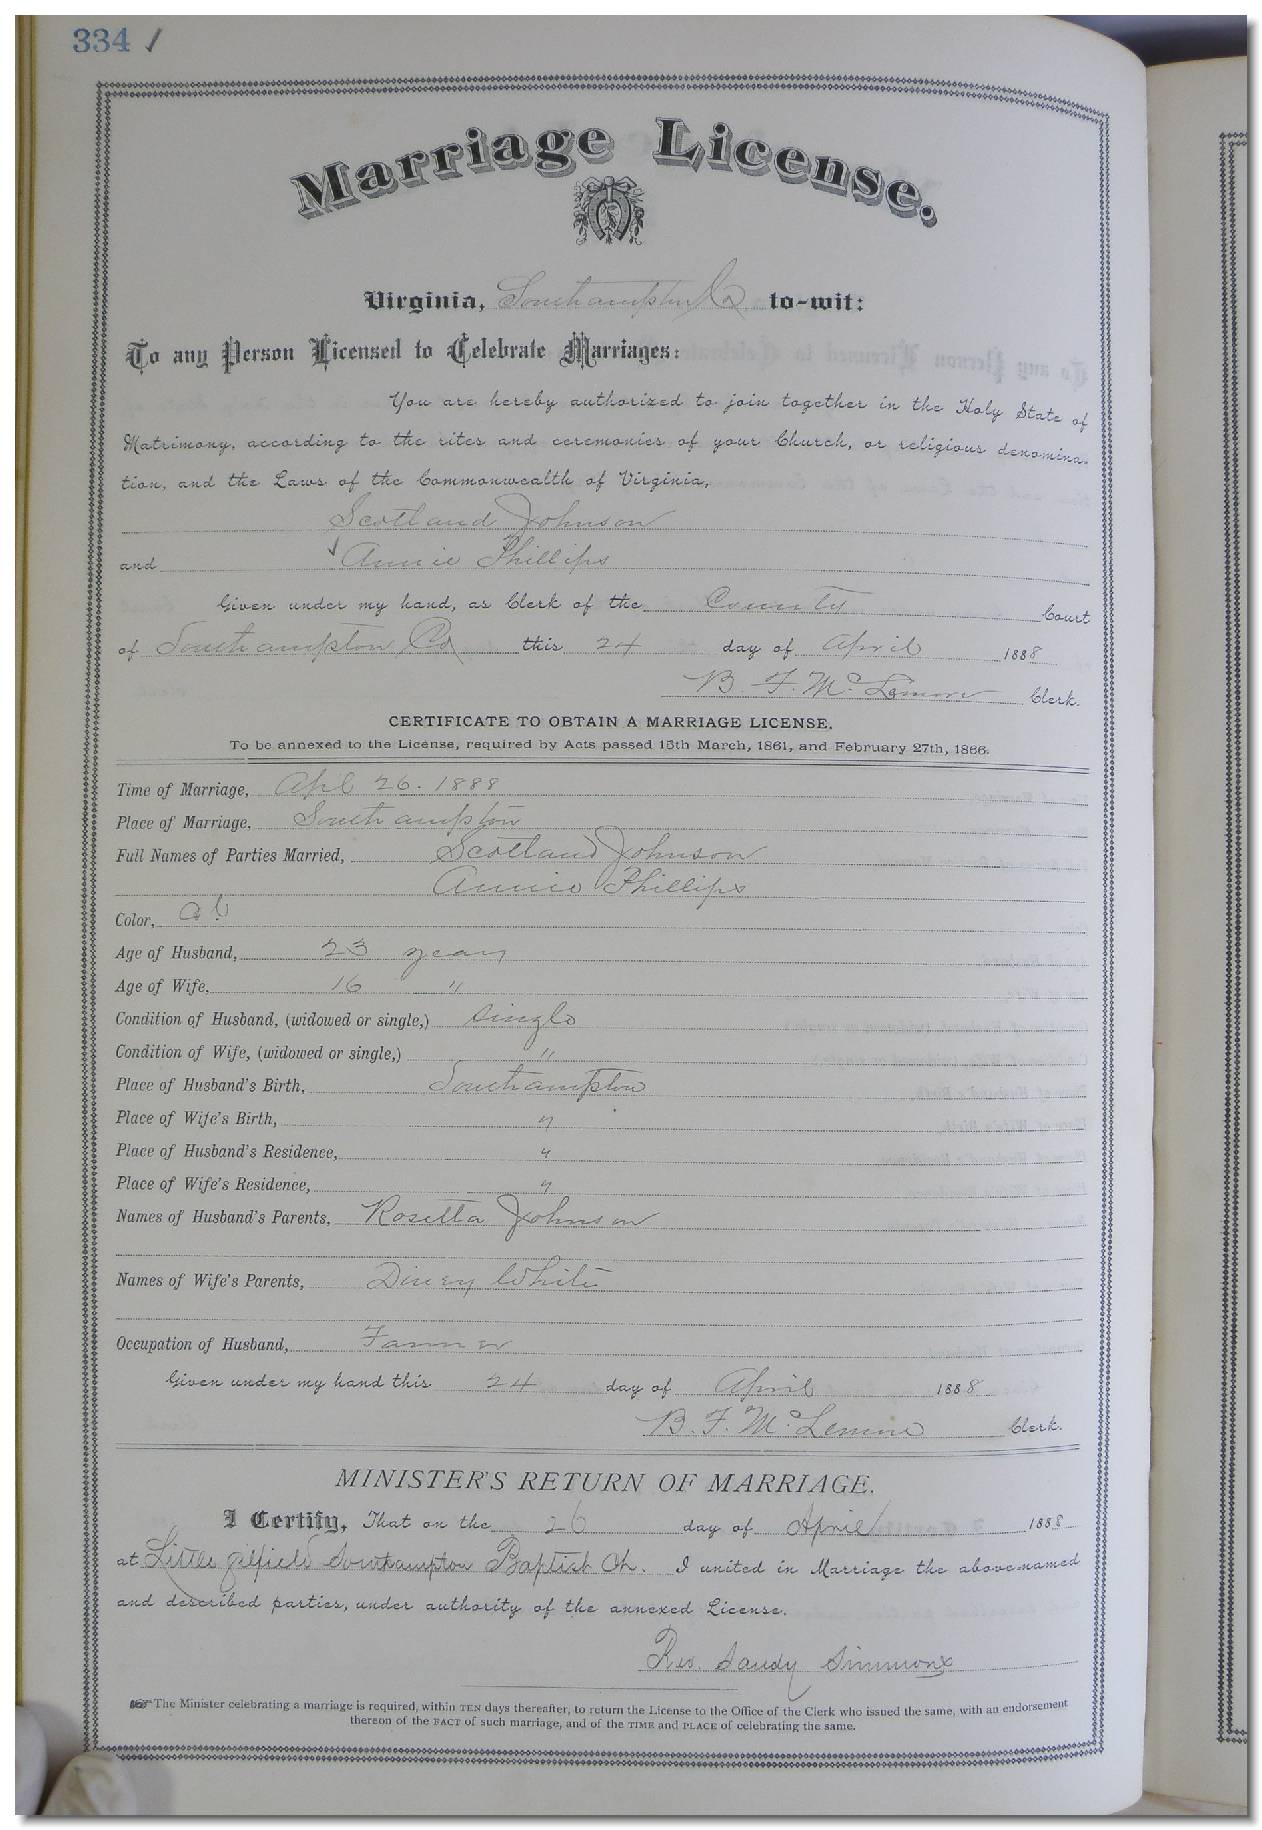 334 /
Marriage License.
Virginia, Southampton Co to-wit:
To any Person Licensed to Celebrate Marriages:
You are hereby authorized to join together in the Holy State of
Matrimony, according to the rites and ceremonies of your Church, or religious denomina-
tion, and the Laws of the Commonwealth of Virginia,
Scotland Johnson
and Annie Phillips
Given under my hand, as Clerk of the County Court
of Southampton Co this 24 day of April 1888
B. F. McLemore Clerk.
CERTIFICATE TO OBTAIN A MARRIAGE LICENSE.
To be annexed to the License, required by Acts passed 15th March, 1861, and February 27th, 1866.
Time of Marriage, Apl 26. 1888
Place of Marriage, Southampton
Full Names of Parties Married, Scotland Johnson
Annie Phillips
Color,
Age of Husband, 23 years
Age of Wife, 16 "
Condition of Husband, (widowed or single,) single
Condition of Wife, (widowed or single,) "
Place of Husband's Birth, Southampton
Place of Wife's Birth, "
Place of Husband's Residence, "
Place of Wife's Residence, "
Names of Husband's Parents, Rosetta Johnson
Names of Wife's Parents, White
Occupation of Husband, Farmer
Given under my hand this 24 day of April 1888
B. F. McLemore Clerk.
MINISTER'S RETURN OF MARRIAGE.
I Certify, That on the 26 day of April 1888
at Little Southampton Baptist Ch. I united in Marriage the above-named
and described parties, under authority of the annexed License.
Rev. Sandy Simmons
The Minister celebrating a marriage is required, within TEN days thereafter, to return the License to the Office of the Clerk who issued the same, with an endorsement
thereon of the FACT of such marriage, and of the TIME and PLACE of celebrating the same.